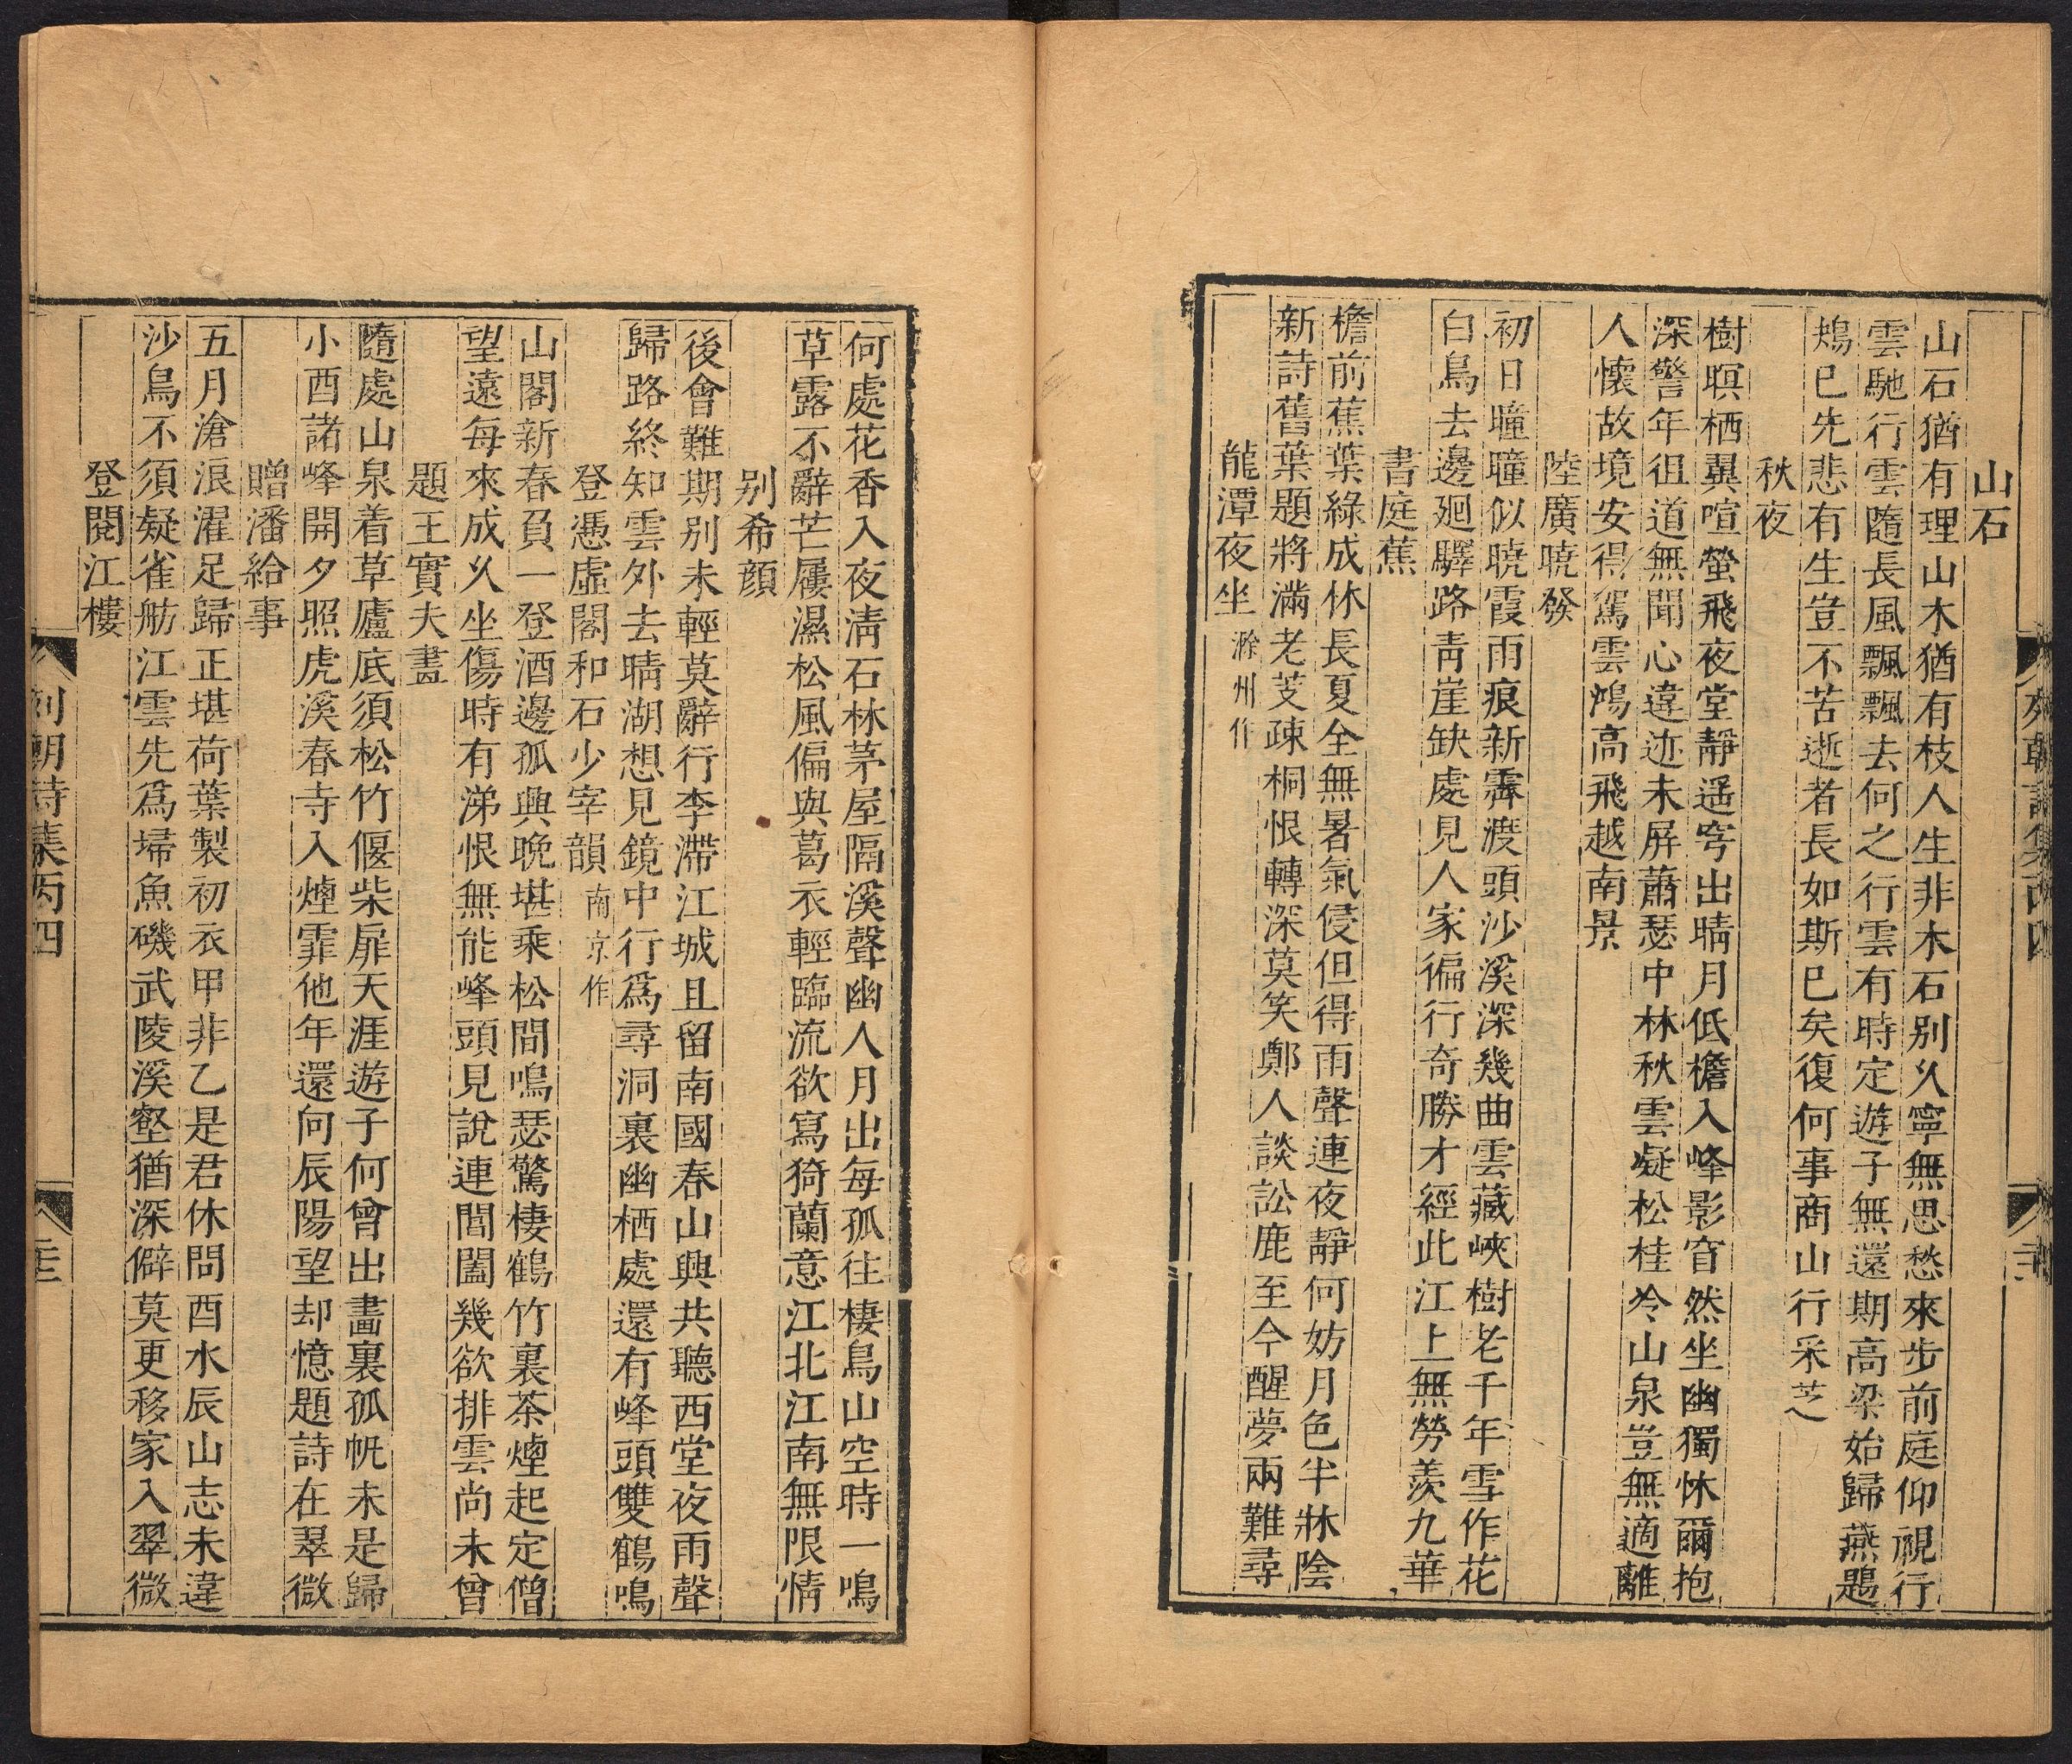 山石
山石猶有理山木猶有枝人生非木石别乆寧無思愁來步前庭仰視行
雲馳行雲隨長風飄飄去何之行雲有時定遊子無還期高梁始歸燕鶗
鴂巳先悲有生豈不苦逝者長如斯巳矣復何事商山行采芝
秋夜
樹暝栖翼喧螢飛夜堂靜遥穹出晴月低檐入峰影窅然坐幽獨怵爾抱
深警年徂道無聞心違迹未屏蕭瑟中林秋雲凝松桂冷山泉豈無適離
人懷故境安得駕雲鴻高飛越南景
陸廣曉發
初日曈曈似曉霞雨痕新霽渡頭沙溪深幾曲雲藏峽樹老千年雪作花
白鳥去邊廻驛路靑崖缺處見人家徧行奇勝才經此江上無勞羨九華
書庭蕉
檐前蕉葉綠成林長夏全無暑氣侵但得雨聲連夜靜何妨月色半牀陰
新詩舊葉題將滿老芰疎桐恨轉深莫笑鄭人談訟鹿至今醒夢兩難尋
龍潭夜坐滁州作
列朝詩集丙四
何處花香入夜淸石林茅屋隔溪聲幽人月出每孤往棲鳥山空時一鳴
草露不辭芒屨濕松風偏與葛衣輕臨流欲寫猗蘭意江北江南無限情
别希顔
後會難期别未輕莫辭行李滯江城且留南國春山興共聽西堂夜雨聲
歸路終知雲外去晴湖想見鏡中行爲尋洞裏幽栖處還有峰頭雙鶴鳴
登憑虛閣和石少宰韻南京作
山閣新春負一登酒邊孤興晚堪乘松間鳴瑟驚棲鶴竹裏茶煙起定僧
望遠每來成乆坐傷時有涕恨無能峰頭見說連閶闔幾欲排雲尚未曾
題王實夫畫
隨處山泉着草廬底須松竹偃柴扉天涯遊子何曾出畫裏孤帆未是歸
小酉諸峰開夕照虎溪春寺入煙霏他年還向辰陽望却憶題詩在翠微
贈潘給事
五月滄浪濯足歸正堪荷葉製初衣甲非乙是君休問酉水辰山志未違
沙鳥不須疑雀舫江雲先爲埽魚磯武陵溪壑猶深僻莫更移家入翠微
登閱江樓
列朝詩集丙四